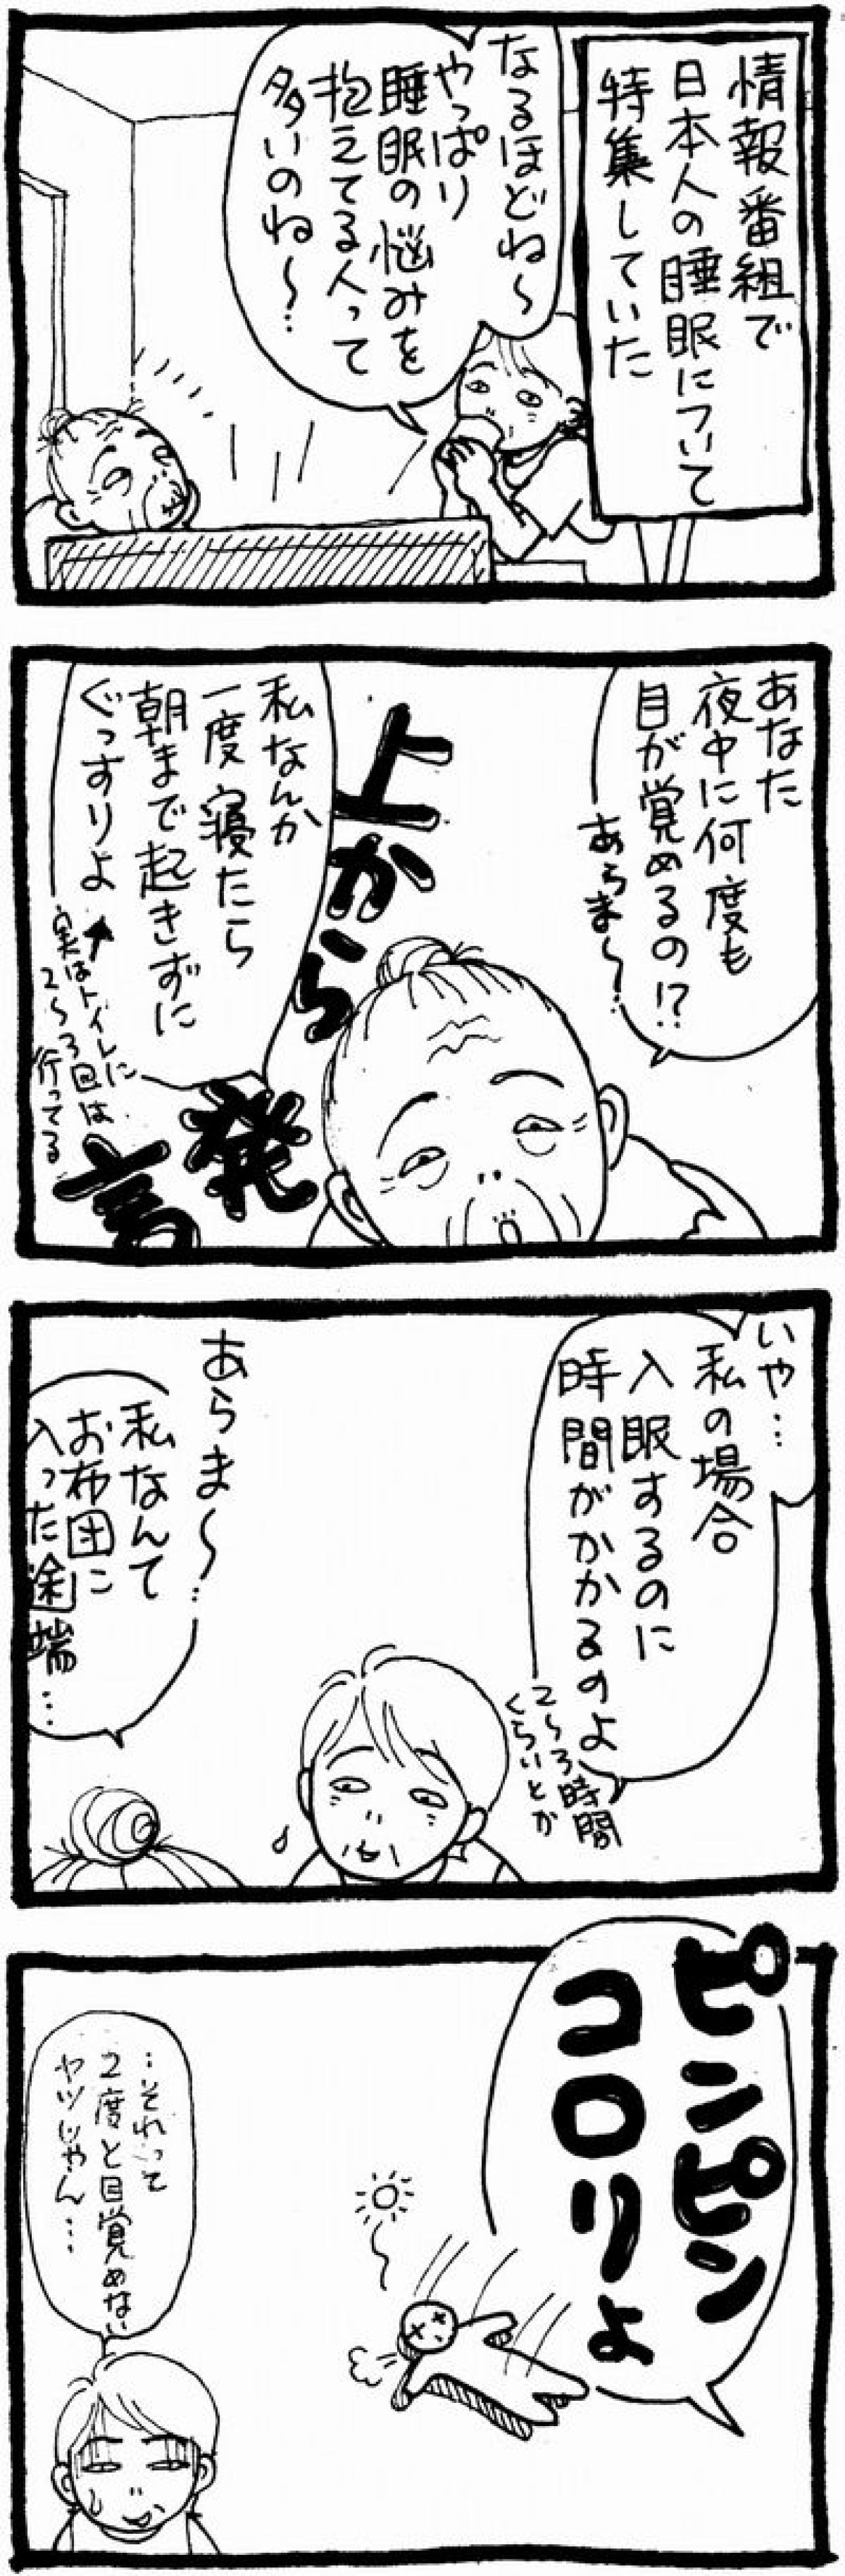 情報番組で
日本人の睡眠について
特集していた
なるほどね〜
やっぱり
睡眠の悩みを
抱えてる人って
多いのね〜…
あなた
夜中に何度も
目が覚めるの!?
あらま〜
上から
発言
私なんか
一度寝たら
朝まで起きずに
ぐっすりよ
実はトイレに
2〜3回は
行ってる
いや…
私の場合
入眠するのに
時間がかかるのよ
2〜3時間
くらいとか
あらま〜…
私なんて
お布団に
入った途端…
ピンピン
コロリよ
…それって
2度と目覚めない
ヤツじゃん…